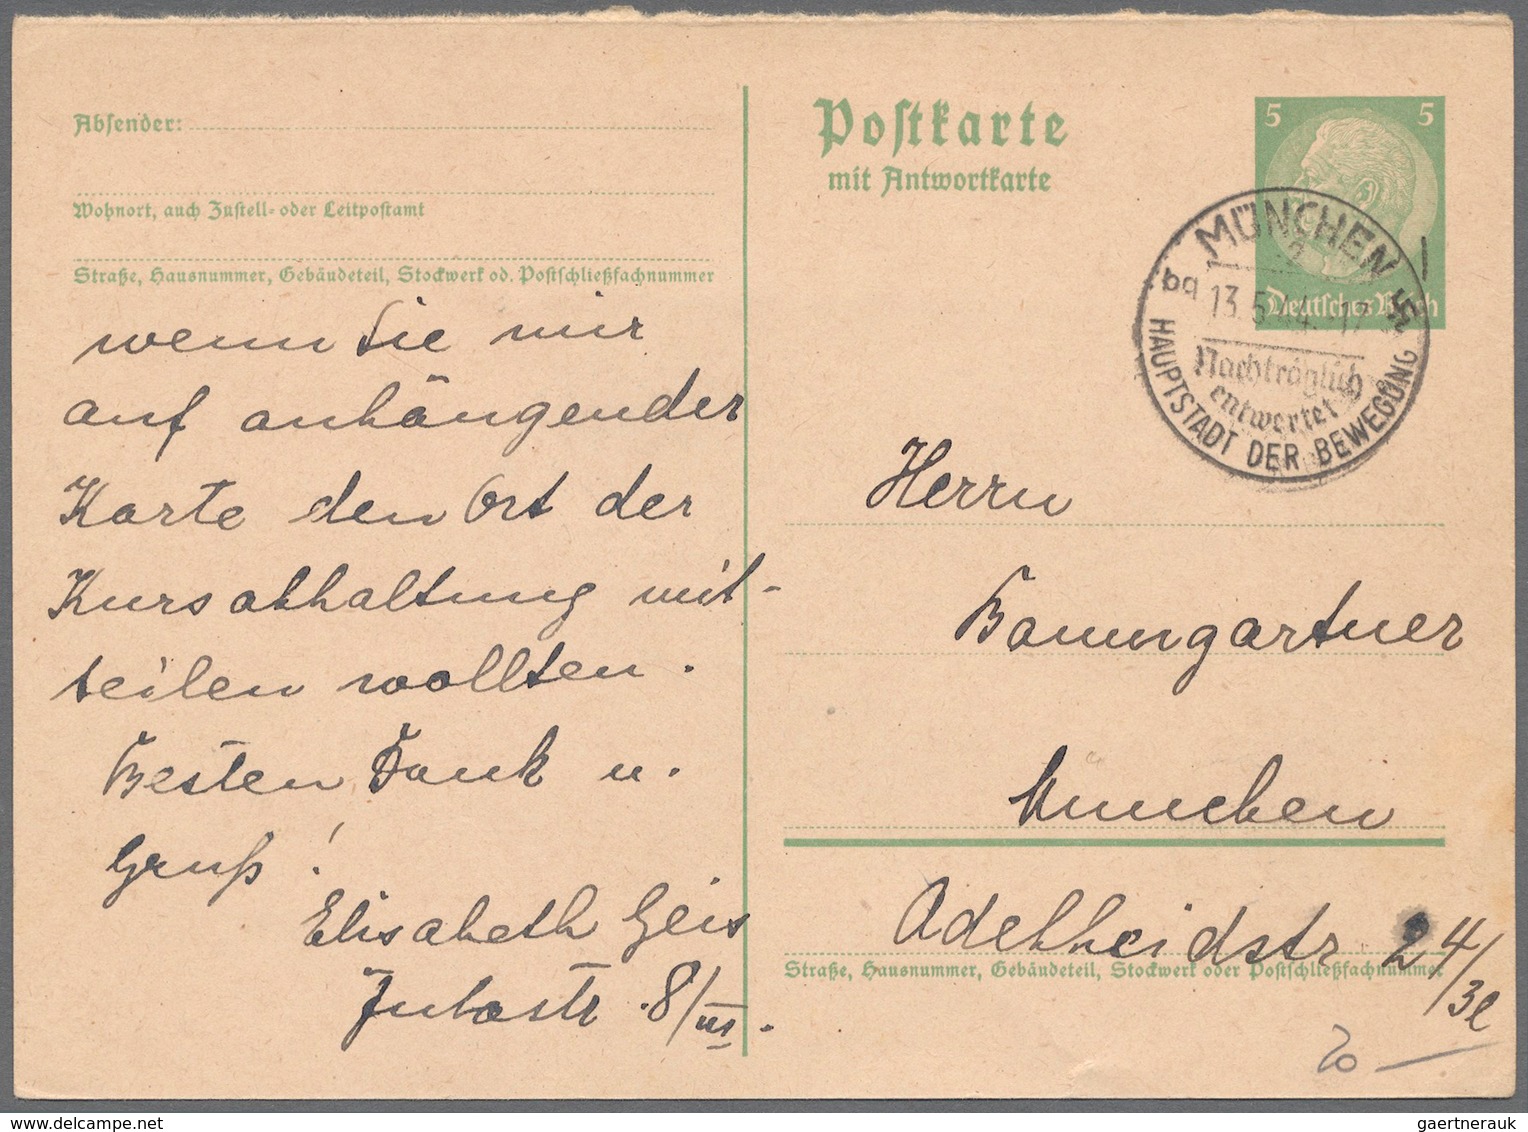 Absender:
Wohnort, auch Zustell- oder Leitpostamt
Straße, Hausnummer, Gebäudeteil, Stockwerk od. Postschließfachnummer
wenn Sie mir
auf anhängender
Karte den Ort der
Kursabhaltung mit-
teilen wollten.
Besten Dank u.
Gruß!
Elisabeth Geis
8/III.
Postkarte
mit Antwortkarte
5 5
Deutsches Reich
MÜNCHEN
2
bq 13.5.44. 17
Nachträglich
entwertet
HAUPTSTADT DER BEWEGUNG
Herrn
Baumgartner
München
Adelheidstr 24/3l
Straße, Hausnummer, Gebäudeteil, Stockwerk oder Postschließfachnummer
20 —
gaertnerauk @ delcampe.net